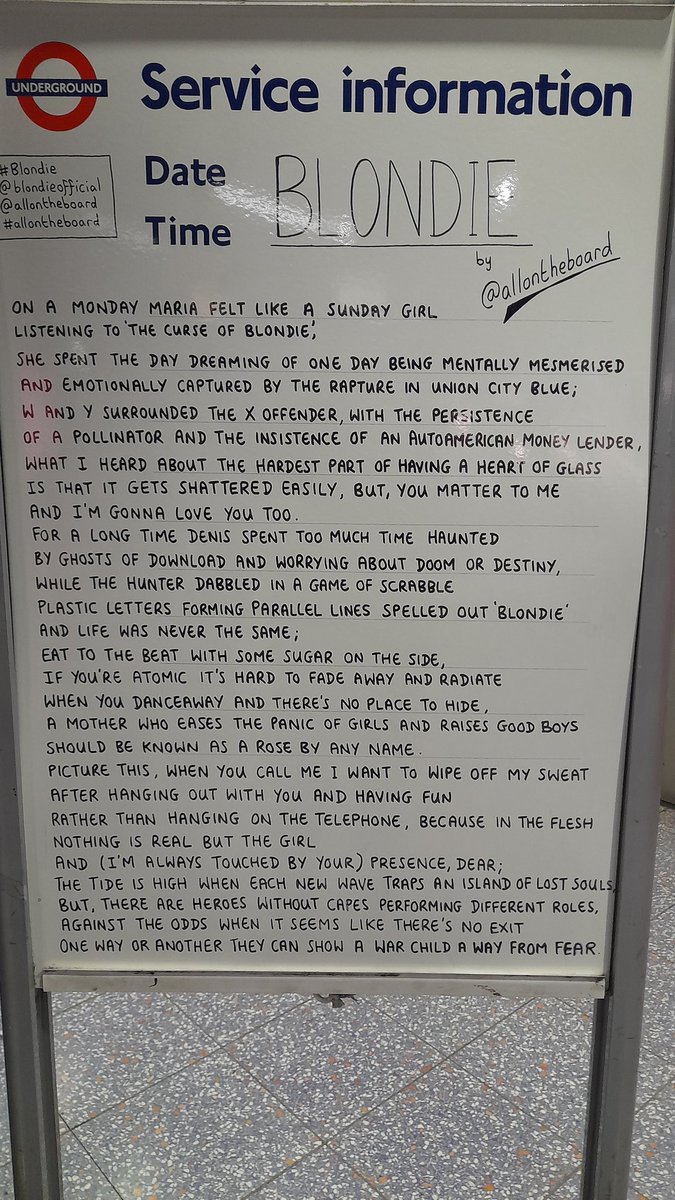 UNDERGROUND
Service information
#Blondie
@blondieofficial
@allontheboard
#allontheboard
Date
Time
BLONDIE
by
@allontheboard
ON A MONDAY MARIA FELT LIKE A SUNDAY GIRL
LISTENING TO 'THE CURSE OF BLONDIE',
SHE SPENT THE DAY DREAMING OF ONE DAY BEING MENTALLY MESMERISED
AND EMOTIONALLY CAPTURED BY THE RAPTURE IN UNION CITY BLUE;
W AND Y SURROUNDED THE X OFFENDER, WITH THE PERSISTENCE
OF A POLLINATOR AND THE INSISTENCE OF AN AUTOAMERICAN MONEY LENDER,
WHAT I HEARD ABOUT THE HARDEST PART OF HAVING A HEART OF GLASS
IS THAT IT GETS SHATTERED EASILY, BUT, YOU MATTER TO ME
AND I'M GONNA LOVE YOU TOO.
FOR A LONG TIME DENIS SPENT TOO MUCH TIME HAUNTED
BY GHOSTS OF DOWNLOAD AND WORRYING ABOUT DOOM OR DESTINY,
WHILE THE HUNTER DABBLED IN A GAME OF SCRABBLE
PLASTIC LETTERS FORMING PARALLEL LINES SPELLED OUT 'BLONDIE'
AND LIFE WAS NEVER THE SAME;
EAT TO THE BEAT WITH SOME SUGAR ON THE SIDE,
IF YOU'RE ATOMIC IT'S HARD TO FADE AWAY AND RADIATE
WHEN YOU DANCEAWAY AND THERE'S NO PLACE TO HIDE,
A MOTHER WHO EASES THE PANIC OF GIRLS AND RAISES GOOD BOYS
SHOULD BE KNOWN AS A ROSE BY ANY NAME.
PICTURE THIS, WHEN YOU CALL ME I WANT TO WIPE OFF MY SWEAT
AFTER HANGING OUT WITH YOU AND HAVING FUN
RATHER THAN HANGING ON THE TELEPHONE, BECAUSE IN THE FLESH
NOTHING IS REAL BUT THE GIRL
AND (I'M ALWAYS TOUCHED BY YOUR) PRESENCE, DEAR;
THE TIDE IS HIGH WHEN EACH NEW WAVE TRAPS AN ISLAND OF LOST SOULS,
BUT, THERE ARE HEROES WITHOUT CAPES PERFORMING DIFFERENT ROLES,
AGAINST THE ODDS WHEN IT SEEMS LIKE THERE'S NO EXIT
ONE WAY OR ANOTHER THEY CAN SHOW A WAR CHILD A WAY FROM FEAR.